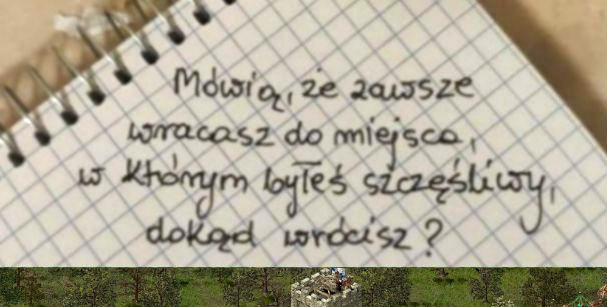 Mówią, że zawsze
wracasz do miejsca,
w którym byłeś szczęśliwy,
dokąd wrócisz?